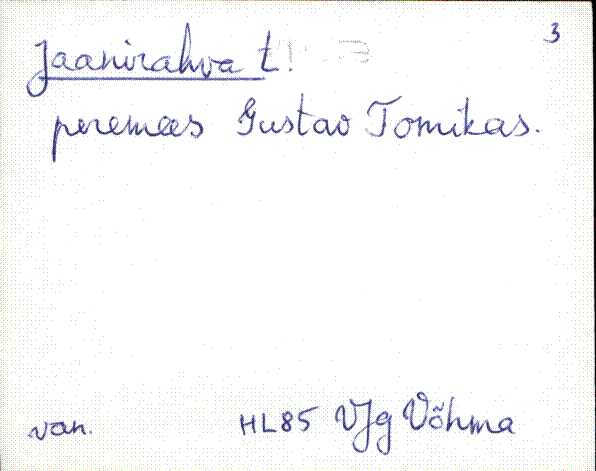 3
Jaanirahva t.
peremees Gustav Tomikas.
van. HL85 VJg Võhma